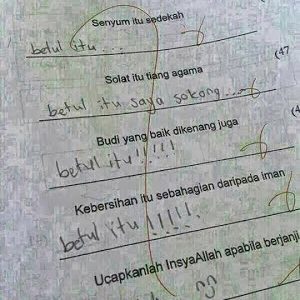 Senyum itu sedekah
betul itu...
(47
Solat itu tiang agama
betul itu saya sokong...
Budi yang baik dikenang juga
betul itu!!!!
Kebersihan itu sebahagian daripada iman
betul itu!!!!!
Ucapkanlah InsyaAllah apabila berjanji